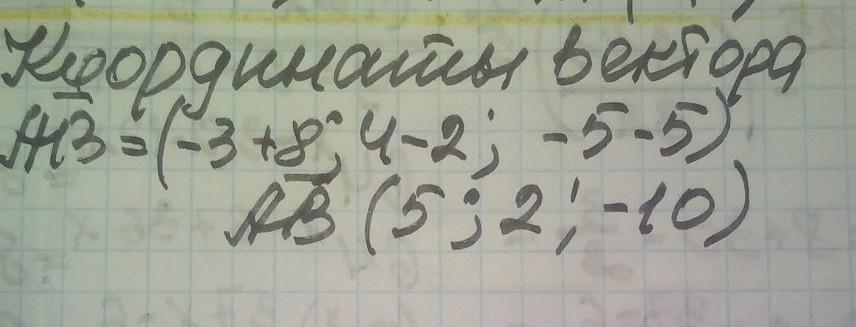 Координаты вектора
AB = (-3+8; 4-2; -5-5)
AB (5; 2; -10)